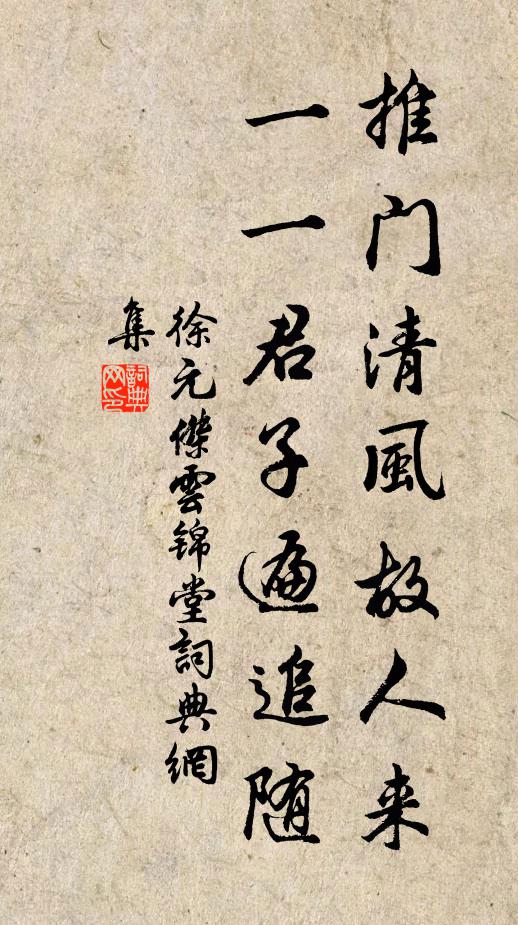 推门清風故人来
一一君子遍追随
徐元傑雲锦堂詞典網
集
詞典網印